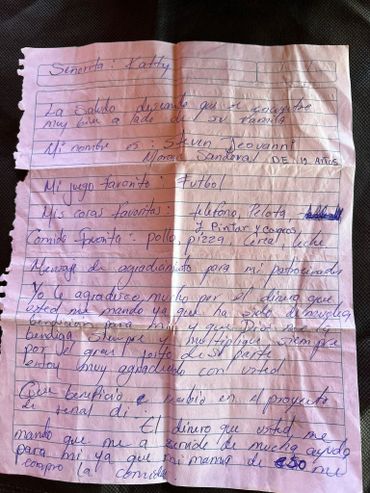 Señorita: Katty
La Saludo deseando que se encuentre
muy bien a lado de su familia
Mi nombre es: Steven Jeovanni
Moran Sandoval DE 14 AÑOS
Mi juego favorito: Futbol
Mis cosas favoritas: telefono, Pelota,
y Pintar y carros,
Comida favorita: pollo, pizza, cereal, leche
Mensaje de agradicimiento para mi patrocinador
Yo le agradisco mucho por el dinero que
usted me mando ya que ha sido de mucha
bendicion para mi y que Dios me la
bendiga siempre y multiplique siempre
por el gran gesto de su parte
estoy muy agradecido con usted
Que beneficio recibio en el proyecto
de
El dinero que usted me
mando que me a servido de mucha ayuda
para mi ya que mi mama de 50 me
compro la comida